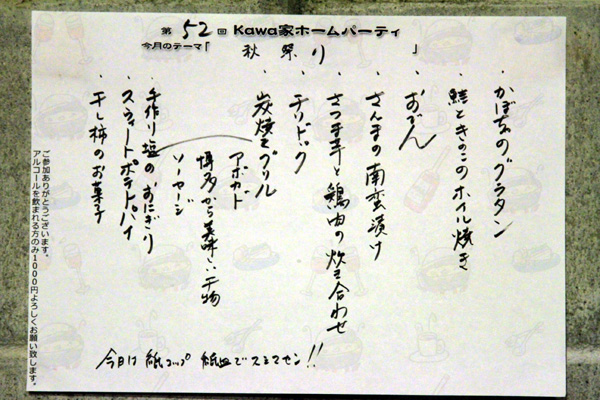 第 52 回 Kawa家ホームパーティ
今月のテーマ「 秋祭り 」
・かぼちゃのグラタン
・鮭ときのこのホイル焼き
・おでん
・さんまの南蛮漬け
・さつま芋と鶏肉の炊き合わせ
・チリドック
・炭焼きグリル
アボガド
博多から美味しい干物
ソーセージ
・手作り塩のおにぎり
・スウィートポテトパイ
・干し柿のお菓子
今日は紙コップ 紙皿でスミマセン!!
ご参加ありがとうございます。
アルコールを飲まれる方のみ1000円よろしくお願い致します。